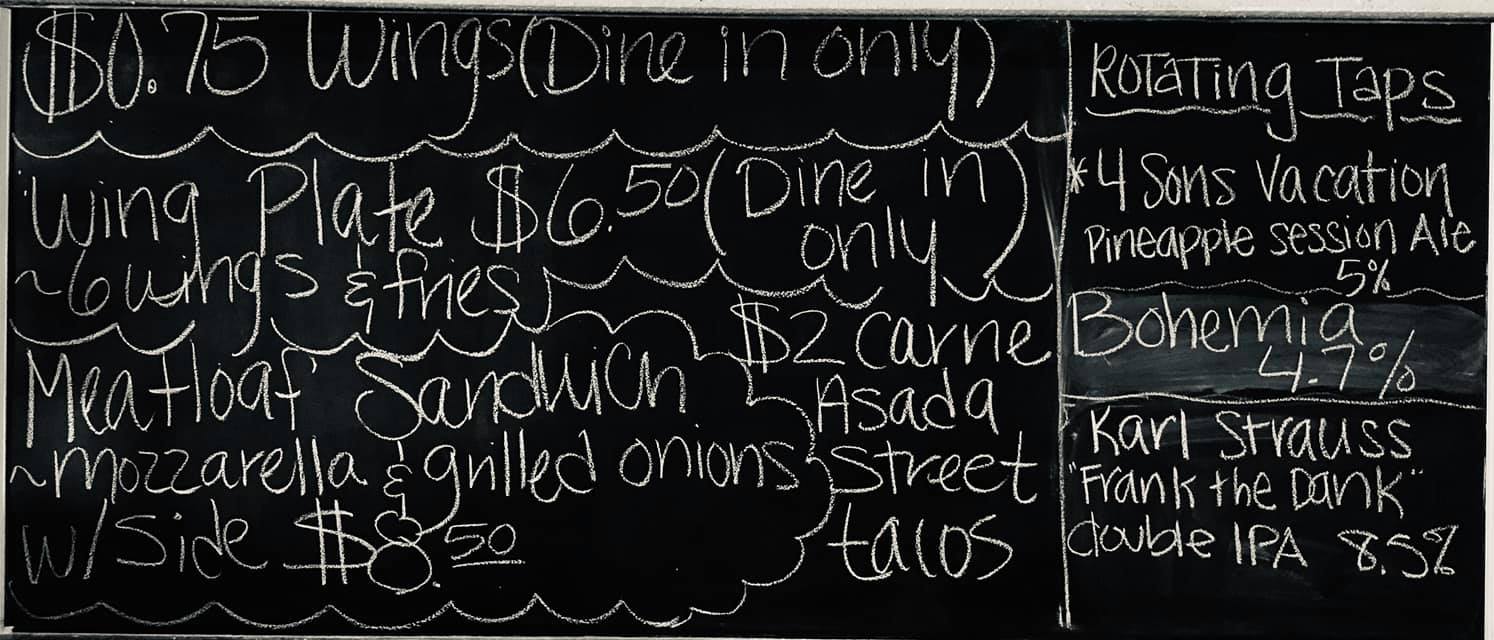 $0.75 Wings (Dine in only)
Wing Plate $6.50 (Dine in
only)
~6 wings & fries
Meatloaf Sandwich
~mozzarella & grilled onions
w/ Side $8.50
$2 Carne
Asada
Street
tacos
Rotating Taps
*4 Sons Vacation
Pineapple session Ale
5%
Bohemia
4.7%
Karl Strauss
"Frank the Dank"
double IPA 8.5%